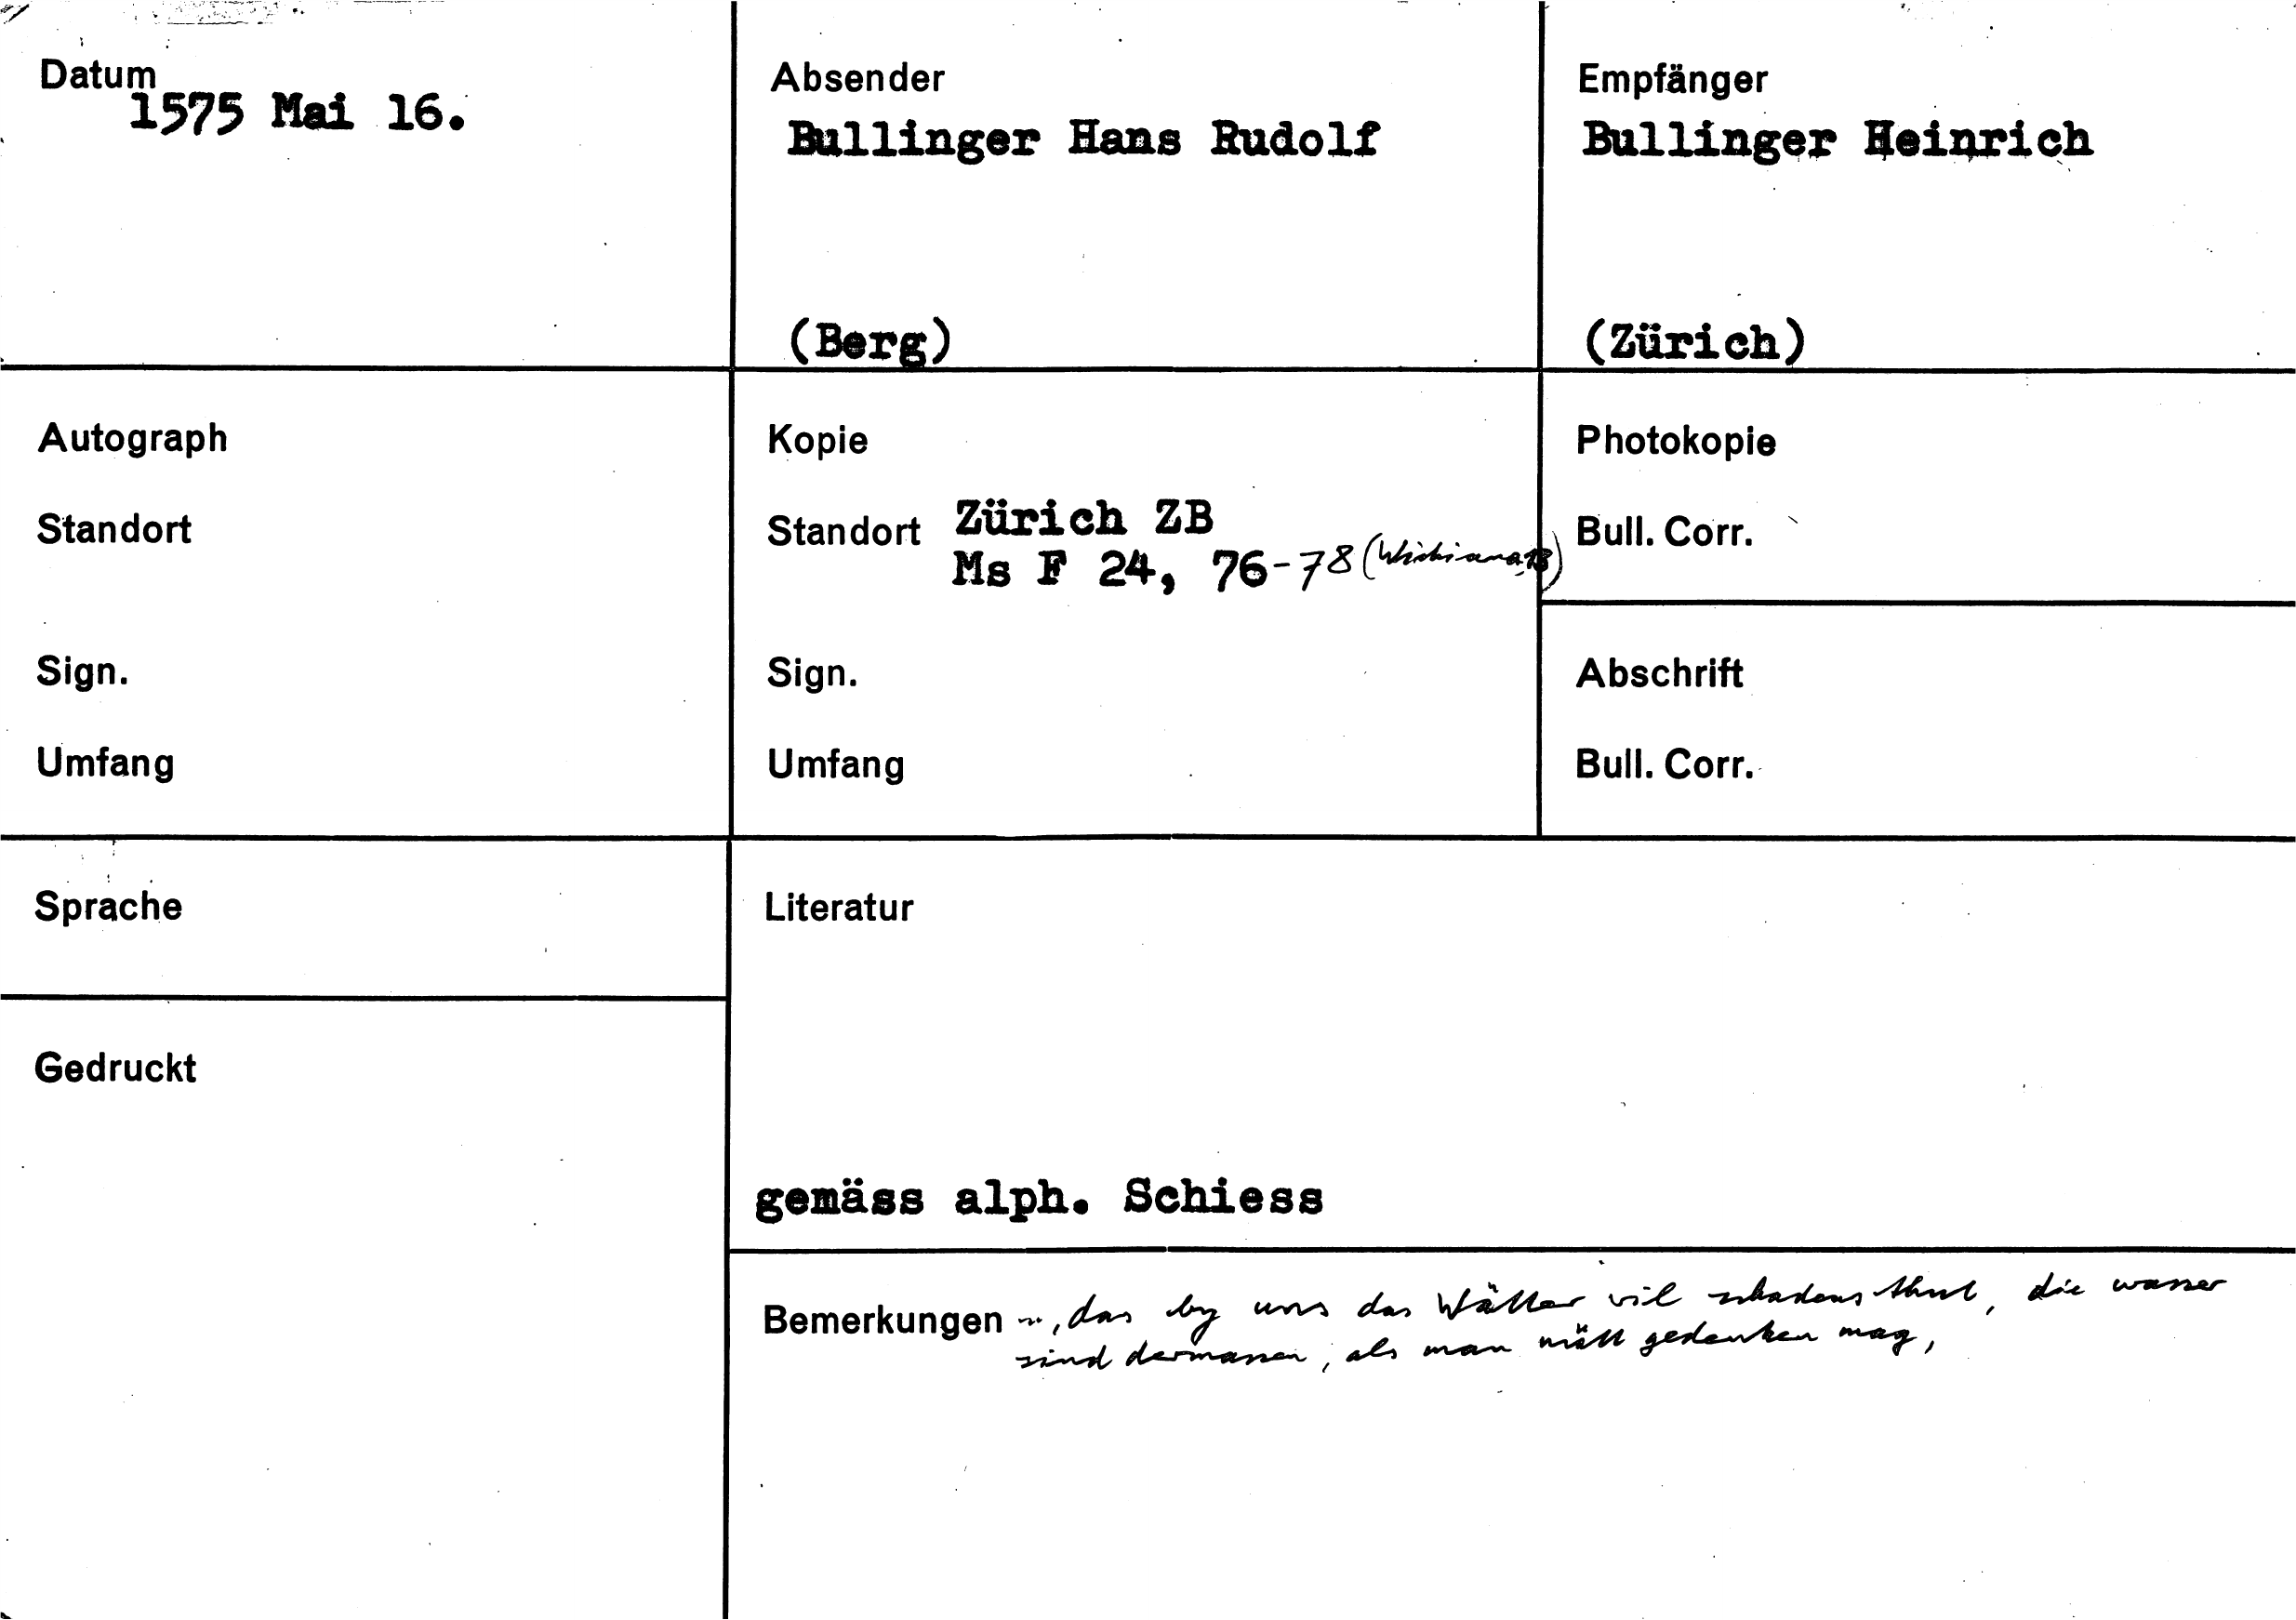 Datum
1575 Mai 16.
Absender
Bullinger Hans Rudolf
(Berg)
Empfänger
Bullinger Heinrich
(Zürich)
Autograph
Standort
Sign.
Umfang
Kopie
Standort Zürich ZB
Ms F 24, 76-78 (Wickiana 13)
Sign.
Umfang
Photokopie
Bull. Corr.
Abschrift
Bull. Corr.
Sprache
Gedruckt
Literatur
gemäss alph. Schiess
Bemerkungen ..., das by uns das Wätter vil schadens thut, die wasser
sind dermassen, als man nitt gedenken mag,